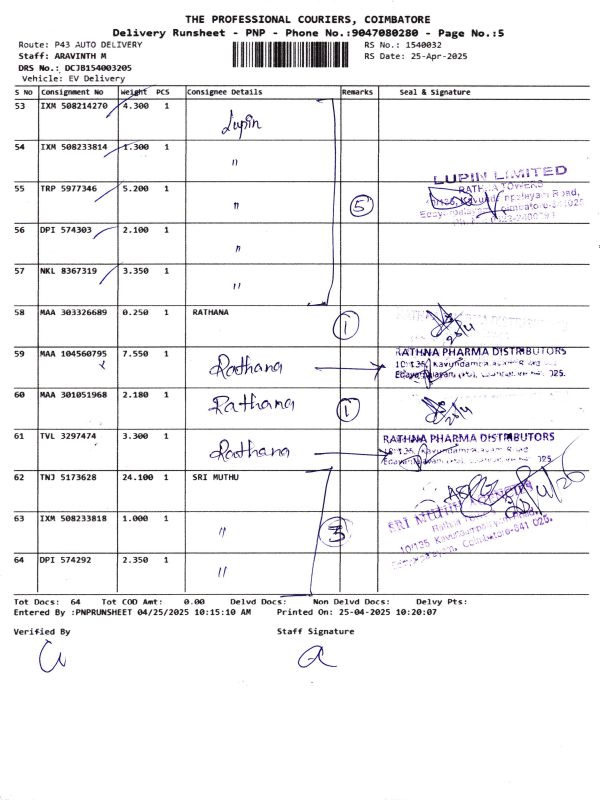 THE PROFESSIONAL COURIERS, COIMBATORE
Delivery Runsheet - PNP - Phone No.:9047080280 - Page No.:5
Route: P43 AUTO DELIVERY RS No.: 1540032
Staff: ARAVINTH M RS Date: 25-Apr-2025
DRS No.: DCJB154003205
Vehicle: EV Delivery
S No Consignment No Weight PCS Consignee Details Remarks Seal & Signature
53 IXM 508214270 4.300 1 Lupin
54 IXM 508233814 1.300 1 "
LUPIN LIMITED
RATHNA TOWERS
55 TRP 5977346 5.200 1 " 5
56 DPI 574303 2.100 1 "
57 NKL 8367319 3.350 1 "
58 MAA 303326689 0.250 1 RATHANA 1
59 MAA 104560795 7.550 1 Rathana RATHNA PHARMA DISTRIBUTORS
60 MAA 301051968 2.180 1 Rathana 1
61 TVL 3297474 3.300 1 Rathana RATHNA PHARMA DISTRIBUTORS
62 TNJ 5173628 24.100 1 SRI MUTHU
63 IXM 508233818 1.000 1 " 3
64 DPI 574292 2.350 1 "
Tot Docs: 64 Tot COD Amt: 0.00 Delvd Docs: Non Delvd Docs: Delvy Pts:
Entered By :PNPRUNSHEET 04/25/2025 10:15:10 AM Printed On: 25-04-2025 10:20:07
Verified By Staff Signature